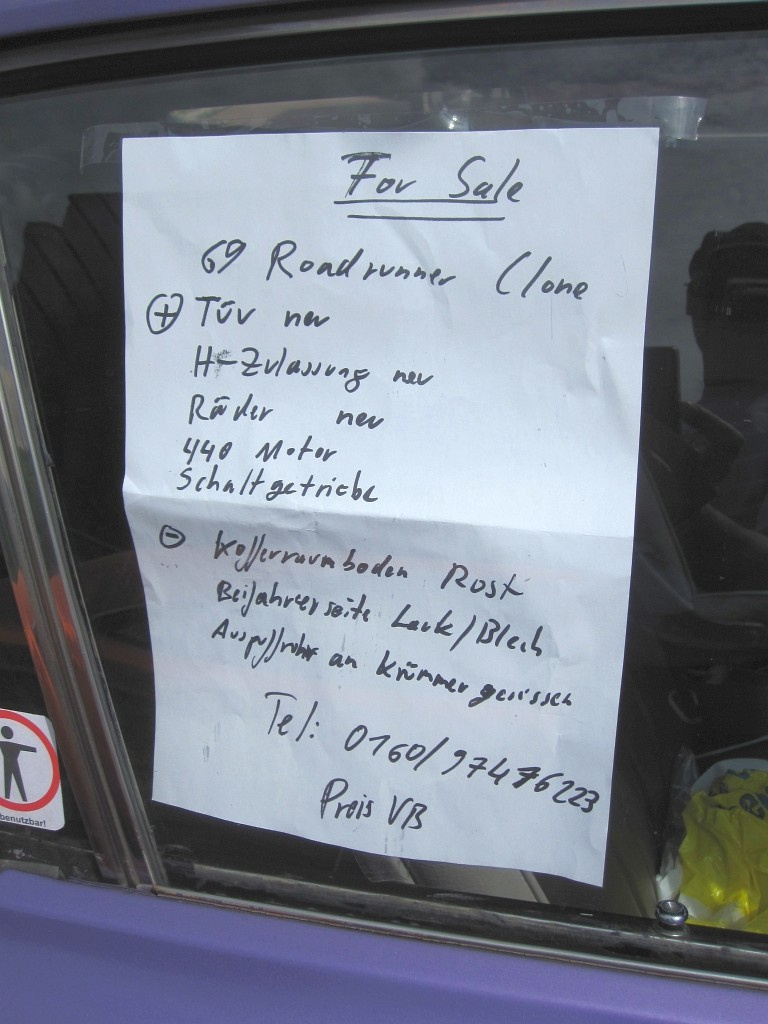 For Sale
69 Roadrunner Clone
⊕ TÜV neu
H-Zulassung neu
Räder neu
440 Motor
Schaltgetriebe
⊖ Kofferraumboden Rost
Beifahrerseite Lack/Blech
Auspuffrohr an Krümmer gerissen
Tel: 0160/97476223
Preis VB
benutzbar!